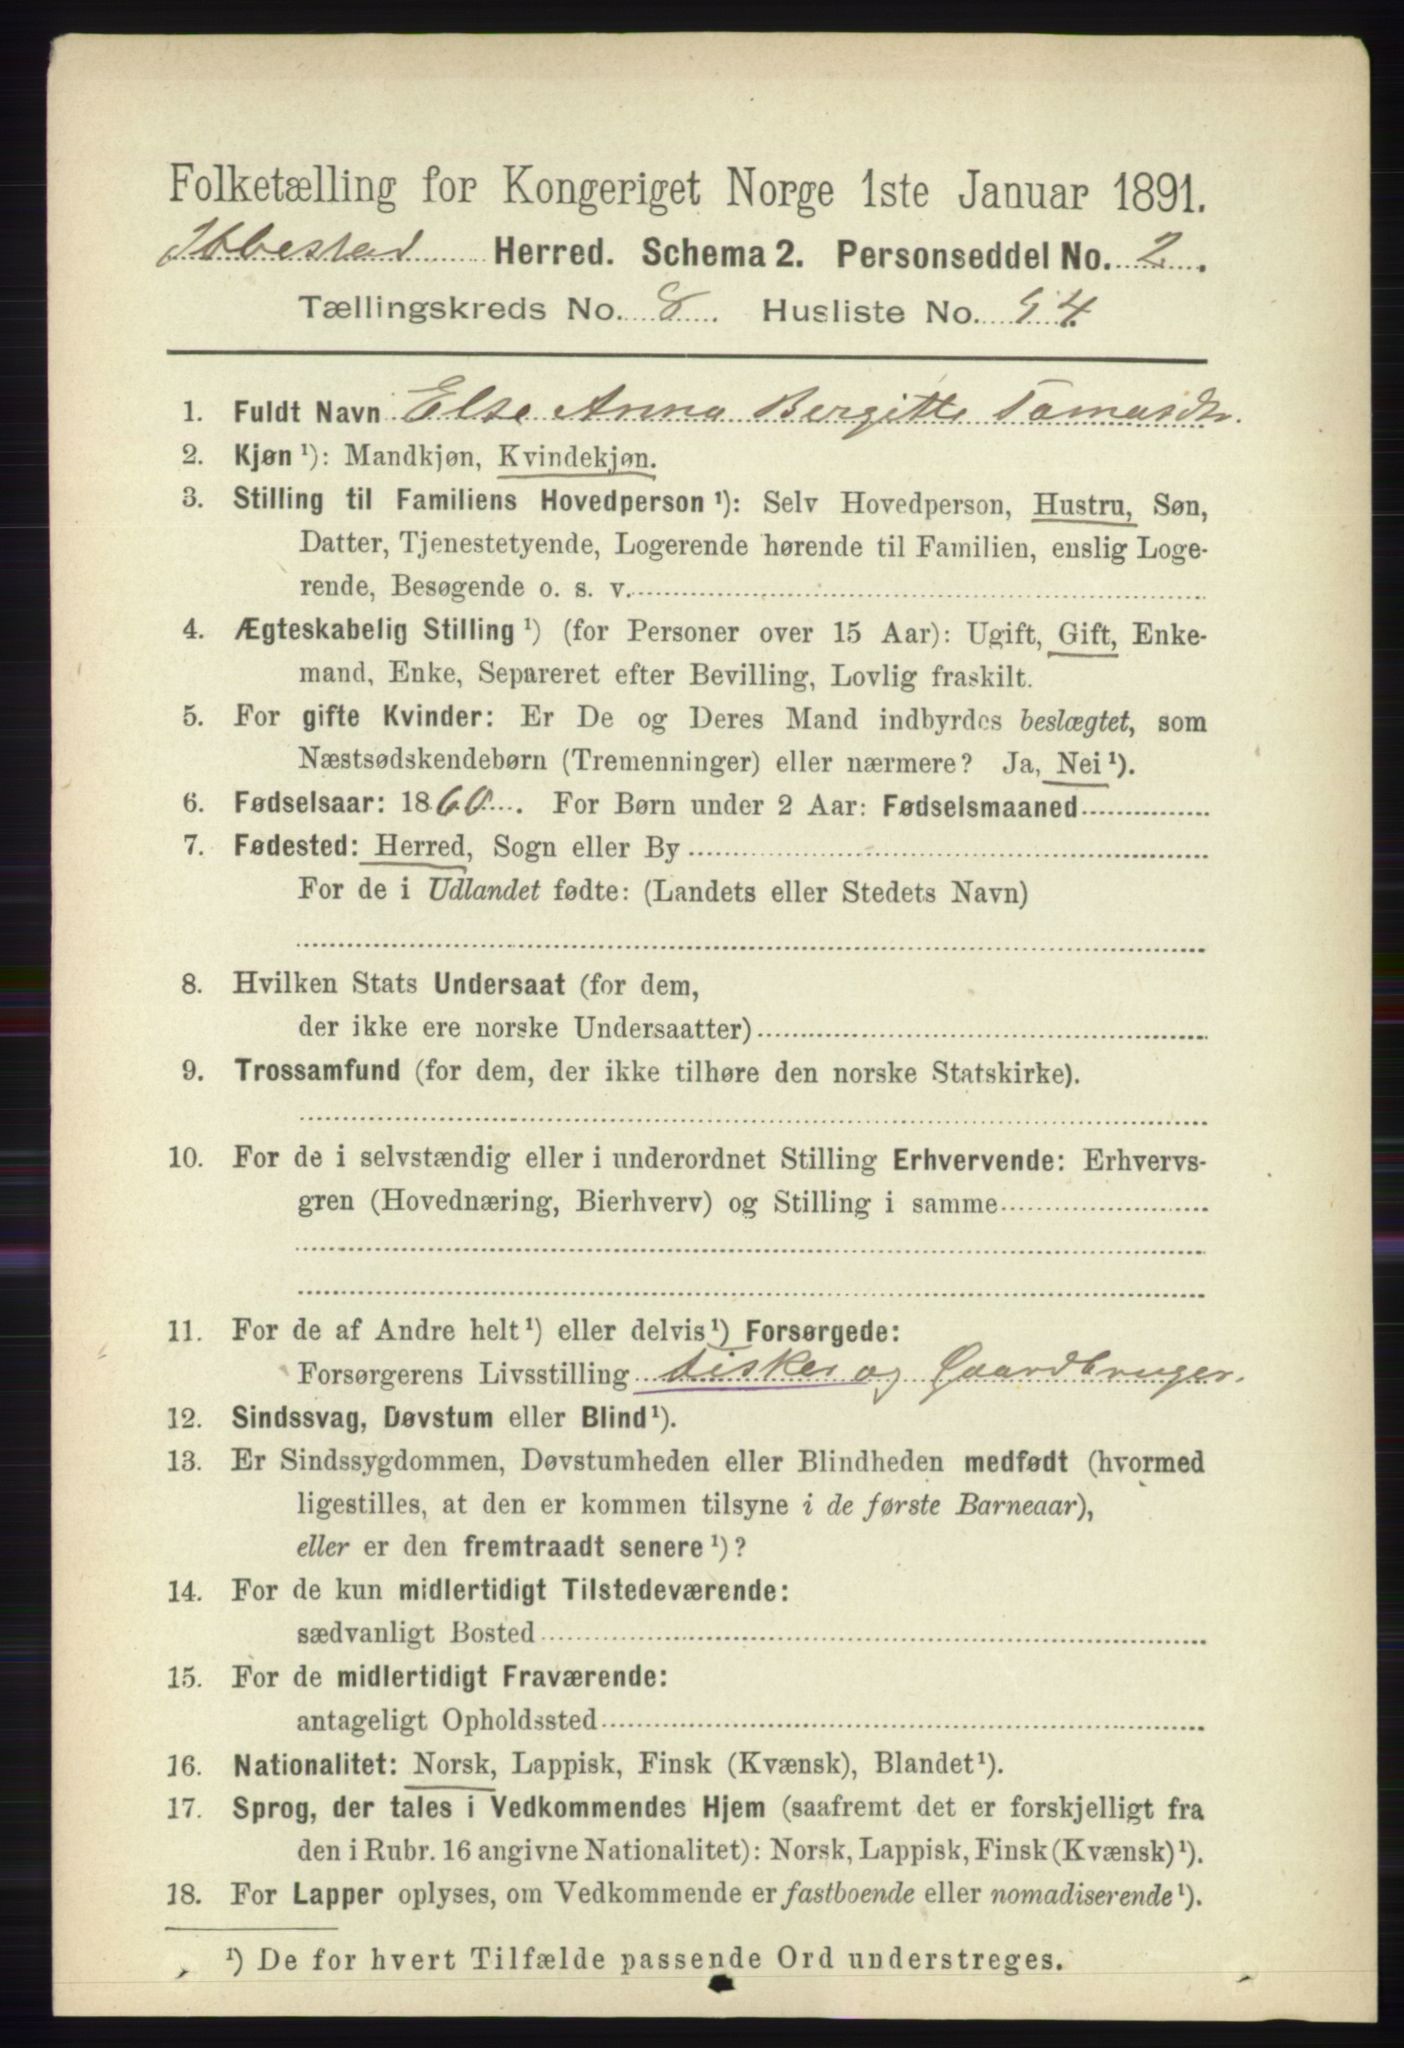 Folketælling for Kongeriget Norge 1ste Januar 1891.
Ibbestad Herred. Schema 2. Personseddel No. 2.
Tællingskreds No. 8. Husliste No. 54
1. Fuldt Navn Else Anna Bergitte Tomasdr.
2. Kjøn ¹): Mandkjøn, Kvindekjøn.
3. Stilling til Familiens Hovedperson ¹): Selv Hovedperson, Hustru, Søn,
Datter, Tjenestetyende, Logerende hørende til Familien, enslig Loge-
rende, Besøgende o. s. v.
4. Ægteskabelig Stilling ¹) (for Personer over 15 Aar): Ugift, Gift, Enke-
mand, Enke, Separeret efter Bevilling, Lovlig fraskilt.
5. For gifte Kvinder: Er De og Deres Mand indbyrdes beslægtet, som
Næstsødskendebørn (Tremenninger) eller nærmere? Ja, Nei ¹).
6. Fødselsaar: 1860. For Børn under 2 Aar: Fødselsmaaned
7. Fødested: Herred, Sogn eller By
For de i Udlandet fødte: (Landets eller Stedets Navn)
8. Hvilken Stats Undersaat (for dem,
der ikke ere norske Undersaatter)
9. Trossamfund (for dem, der ikke tilhøre den norske Statskirke).
10. For de i selvstændig eller i underordnet Stilling Erhvervende: Erhvervs-
gren (Hovednæring, Bierhverv) og Stilling i samme
11. For de af Andre helt ¹) eller delvis ¹) Forsørgede:
Forsørgerens Livsstilling Fisker og Gaardbruger.
12. Sindssvag, Døvstum eller Blind ¹).
13. Er Sindssygdommen, Døvstumheden eller Blindheden medfødt (hvormed
ligestilles, at den er kommen tilsyne i de første Barneaar),
eller er den fremtraadt senere ¹)?
14. For de kun midlertidigt Tilstedeværende:
sædvanligt Bosted
15. For de midlertidigt Fraværende:
antageligt Opholdssted
16. Nationalitet: Norsk, Lappisk, Finsk (Kvænsk), Blandet ¹).
17. Sprog, der tales i Vedkommendes Hjem (saafremt det er forskjelligt fra
den i Rubr. 16 angivne Nationalitet): Norsk, Lappisk, Finsk (Kvænsk) ¹).
18. For Lapper oplyses, om Vedkommende er fastboende eller nomadiserende ¹).
¹) De for hvert Tilfælde passende Ord understreges.